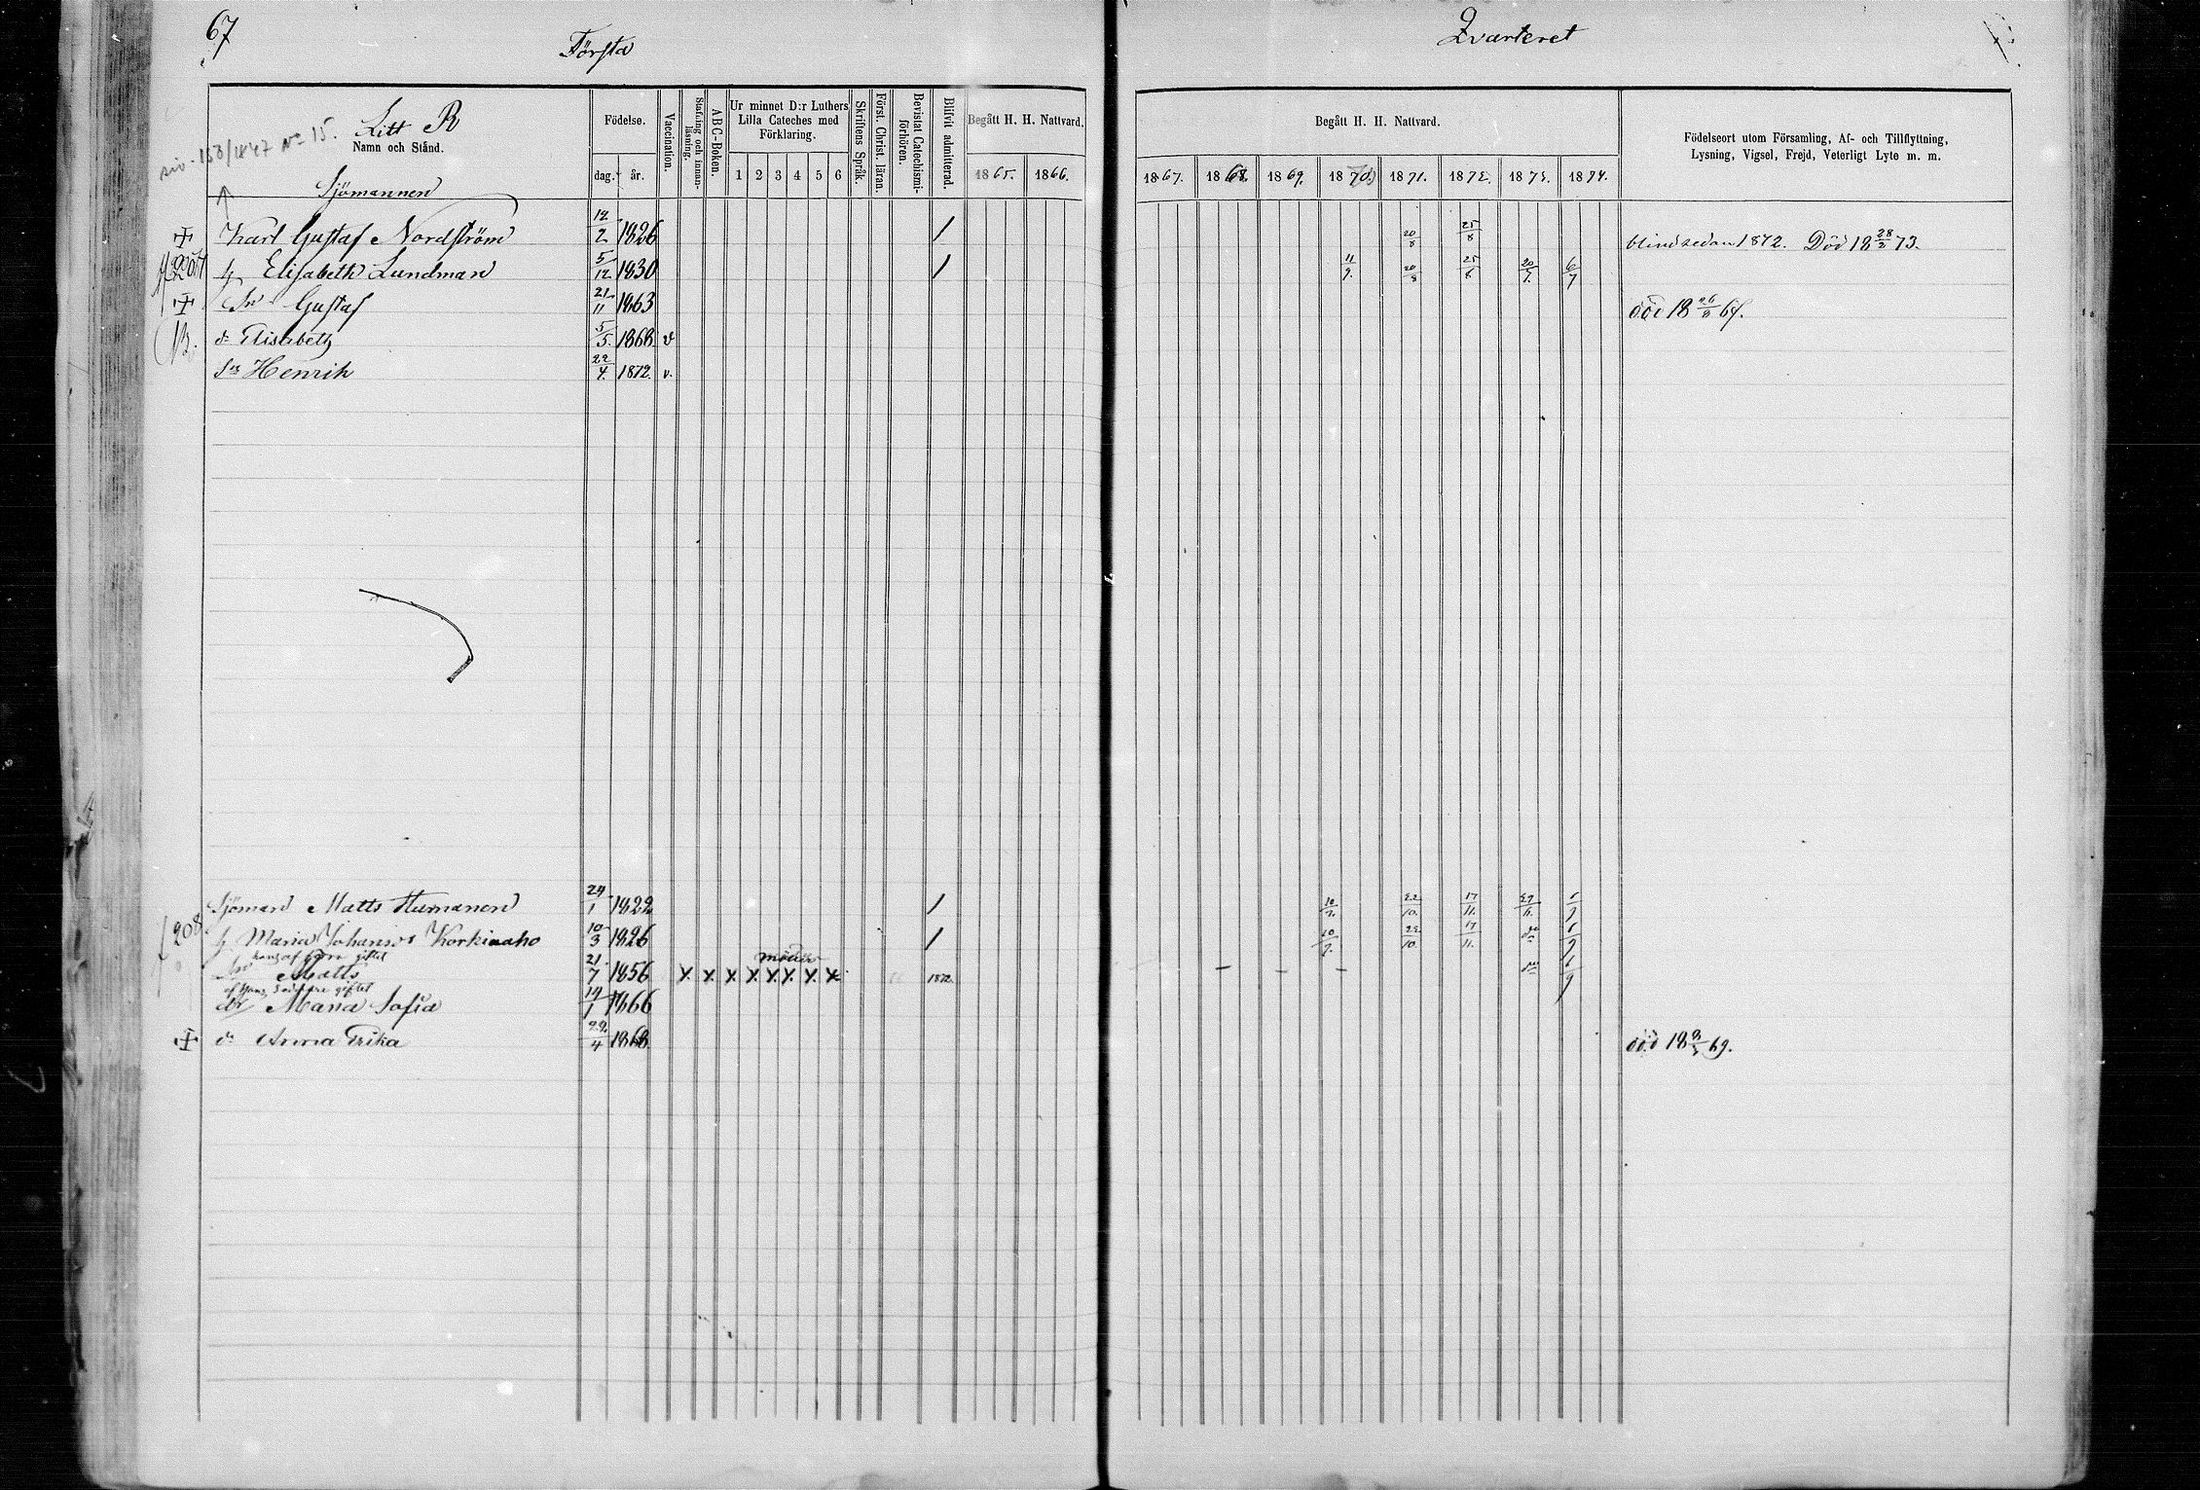 67
Första
Qvarteret
Litt R
No 15.
Namn och Stånd.
Födelse.
dag. år.
Vaccination.
Stafning och innanläsning.
ABC-Boken.
Ur minnet D:r Luthers Lilla Cateches med Förklaring.
1 2 3 4 5 6
Skriftens Språk.
Först. Christ. läran.
Bevistat Catechismiförhören.
Blifvit admitterad.
Begått H. H. Nattvard.
1865. 1866.
Begått H. H. Nattvard.
1867. 1868. 1869. 1870. 1871. 1872. 1873. 1874.
Födelseort utom Församling, Af- och Tillflyttning,
Lysning, Vigsel, Frejd, Veterligt Lyte m. m.
Sjömannen
Karl Gustaf Nordström 12/2 1826 / 20/8 25/8 blind sedan 1872. Död 18 28/3 73.
h Elisabeth Lundman 5/12 1830 / 11/9. 20/8 25/8 20/7. 6/7
Sn Gustaf 21/11 1863 död 18
dr Elisabeth 5/5. 1868 v
Sn Henrik 22/4. 1872. v.
Sjöman Matts 24/1 1822 / 10/7. 22/10. 17/11.
208
h Maria Johansdr Korkiaaho 10/3 1826 / 10/7. 22/10. 17/11. do
Sn Matts 21/7 1856 x x x x x x x x 1872. — — —
giftet
dr Maria Sofia 19/1 1866
dr Anna Erika 22/4 1868. död 18 69.